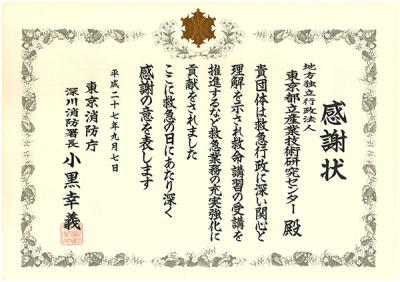 感謝状
地方独立行政法人
東京都立産業技術研究センター 殿
貴団体は救急行政に深い関心と
理解を示され救命講習の受講を
推進するなど救急業務の充実強化に
貢献をされました
ここに救急の日にあたり深く
感謝の意を表します
平成二十七年九月七日
東京消防庁
深川消防署長 小黒幸義